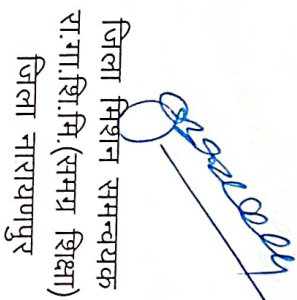 जिला मिशन समन्वयक
रा.मा.शि.मि.(समग्र शिक्षा)
जिला नारायणपुर